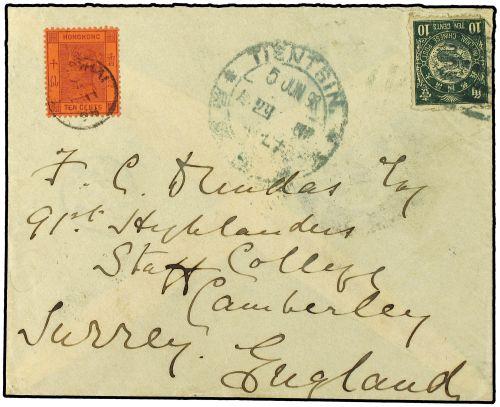 HONGKONG
TEN CENTS
TIENTSIN
5 JUN
10 TEN CENTS 10
F. C. Dundas Esq
91st Highlanders
Staff College
Camberley
Surrey. England